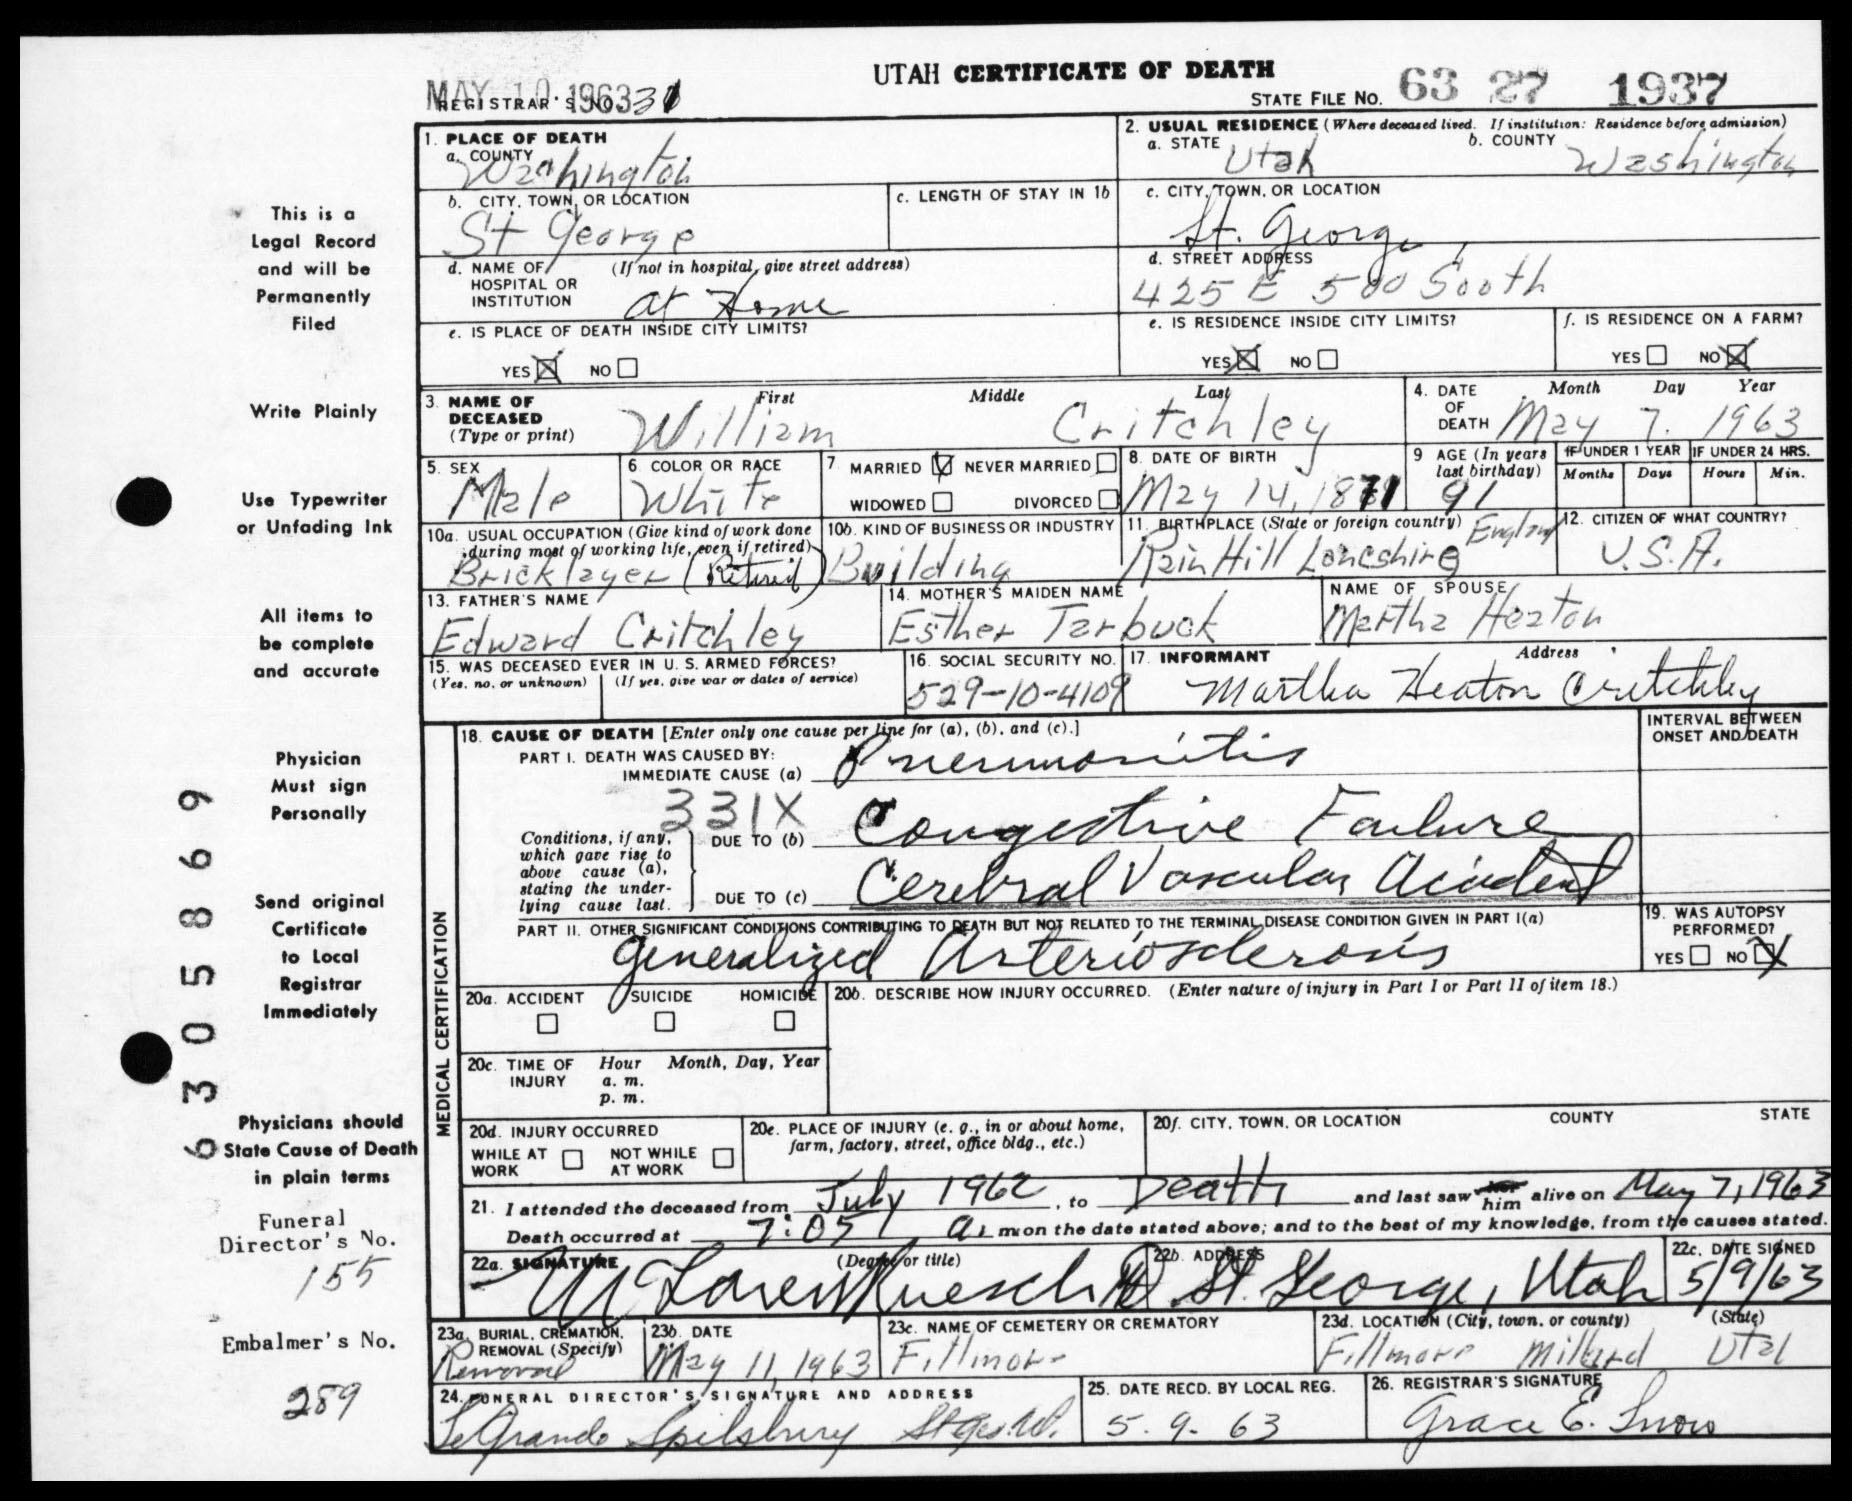 UTAH CERTIFICATE OF DEATH
MAY 10 1963
REGISTRAR'S NO. 31
STATE FILE NO. 63 27 1937
This is a
Legal Record
and will be
Permanently
Filed
Write Plainly
Use Typewriter
or Unfading Ink
All items to
be complete
and accurate
Physician
Must sign
Personally
Send original
Certificate
to Local
Registrar
Immediately
Physicians should
State Cause of Death
in plain terms
Funeral
Director's No.
155
Embalmer's No.
289
6305869
1. PLACE OF DEATH
a. COUNTY
Washington
2. USUAL RESIDENCE (Where deceased lived. If institution: Residence before admission)
a. STATE Utah b. COUNTY Washington
b. CITY, TOWN, OR LOCATION
St George
c. LENGTH OF STAY IN 1b
c. CITY, TOWN, OR LOCATION
St. George
d. NAME OF (If not in hospital, give street address)
HOSPITAL OR
INSTITUTION at Home
d. STREET ADDRESS
425 E 500 South
e. IS PLACE OF DEATH INSIDE CITY LIMITS?
YES NO
e. IS RESIDENCE INSIDE CITY LIMITS?
YES NO
f. IS RESIDENCE ON A FARM?
YES NO
3. NAME OF First Middle Last
DECEASED
(Type or print) William Critchley
4. DATE Month Day Year
OF
DEATH May 7. 1963
5. SEX
Male
6. COLOR OR RACE
White
7. MARRIED NEVER MARRIED
WIDOWED DIVORCED
8. DATE OF BIRTH
May 14, 1871
9 AGE (In years
last birthday)
91
IF UNDER 1 YEAR IF UNDER 24 HRS.
Months Days Hours Min.
10a. USUAL OCCUPATION (Give kind of work done
during most of working life, even if retired)
Bricklayer (Retired)
10b. KIND OF BUSINESS OR INDUSTRY
Building
11. BIRTHPLACE (State or foreign country)
Rain Hill Loncshire England
12. CITIZEN OF WHAT COUNTRY?
U.S.A.
13. FATHER'S NAME
Edward Critchley
14. MOTHER'S MAIDEN NAME
Esther Tarbuck
NAME OF SPOUSE
Martha Heaton
15. WAS DECEASED EVER IN U. S. ARMED FORCES?
(Yes, no, or unknown) (If yes, give war or dates of service)
16. SOCIAL SECURITY NO.
529-10-4109
17. INFORMANT Address
Martha Heaton Critchley
MEDICAL CERTIFICATION
18. CAUSE OF DEATH [Enter only one cause per line for (a), (b), and (c).]
INTERVAL BETWEEN
ONSET AND DEATH
PART I. DEATH WAS CAUSED BY:
IMMEDIATE CAUSE (a) Pneumonitis
331X
Conditions, if any,
which gave rise to
above cause (a),
stating the under-
lying cause last.
DUE TO (b) Congestive Failure
DUE TO (c) Cerebral Vascular Accident
PART II. OTHER SIGNIFICANT CONDITIONS CONTRIBUTING TO DEATH BUT NOT RELATED TO THE TERMINAL DISEASE CONDITION GIVEN IN PART I(a)
Generalized Arteriosclerosis
19. WAS AUTOPSY
PERFORMED?
YES NO
20a. ACCIDENT SUICIDE HOMICIDE
20b. DESCRIBE HOW INJURY OCCURRED. (Enter nature of injury in Part I or Part II of item 18.)
20c. TIME OF Hour Month, Day, Year
INJURY a. m.
p. m.
20d. INJURY OCCURRED
WHILE AT NOT WHILE
WORK AT WORK
20e. PLACE OF INJURY (e. g., in or about home,
farm, factory, street, office bldg., etc.)
20f. CITY, TOWN, OR LOCATION COUNTY STATE
21. I attended the deceased from July 1962, to Death and last saw her him alive on May 7, 1963
Death occurred at 7:05 a. m on the date stated above; and to the best of my knowledge, from the causes stated.
22a. SIGNATURE (Degree or title)
McLoren Ruesch MD
22b. ADDRESS
St. George, Utah
22c. DATE SIGNED
5/9/63
23a. BURIAL, CREMATION,
REMOVAL (Specify)
Removal
23b. DATE
May 11, 1963
23c. NAME OF CEMETERY OR CREMATORY
Fillmore
23d. LOCATION (City, town, or county) (State)
Fillmore Millard Utal
24. FUNERAL DIRECTOR'S SIGNATURE AND ADDRESS
LeGrande Spilsbury
25. DATE RECD. BY LOCAL REG.
5. 9. 63
26. REGISTRAR'S SIGNATURE
Grace E. Snow